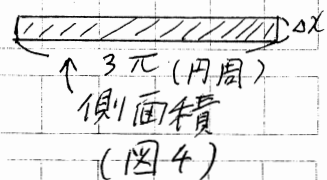 Δx
3π (円周)
↑
側面積
(図4)